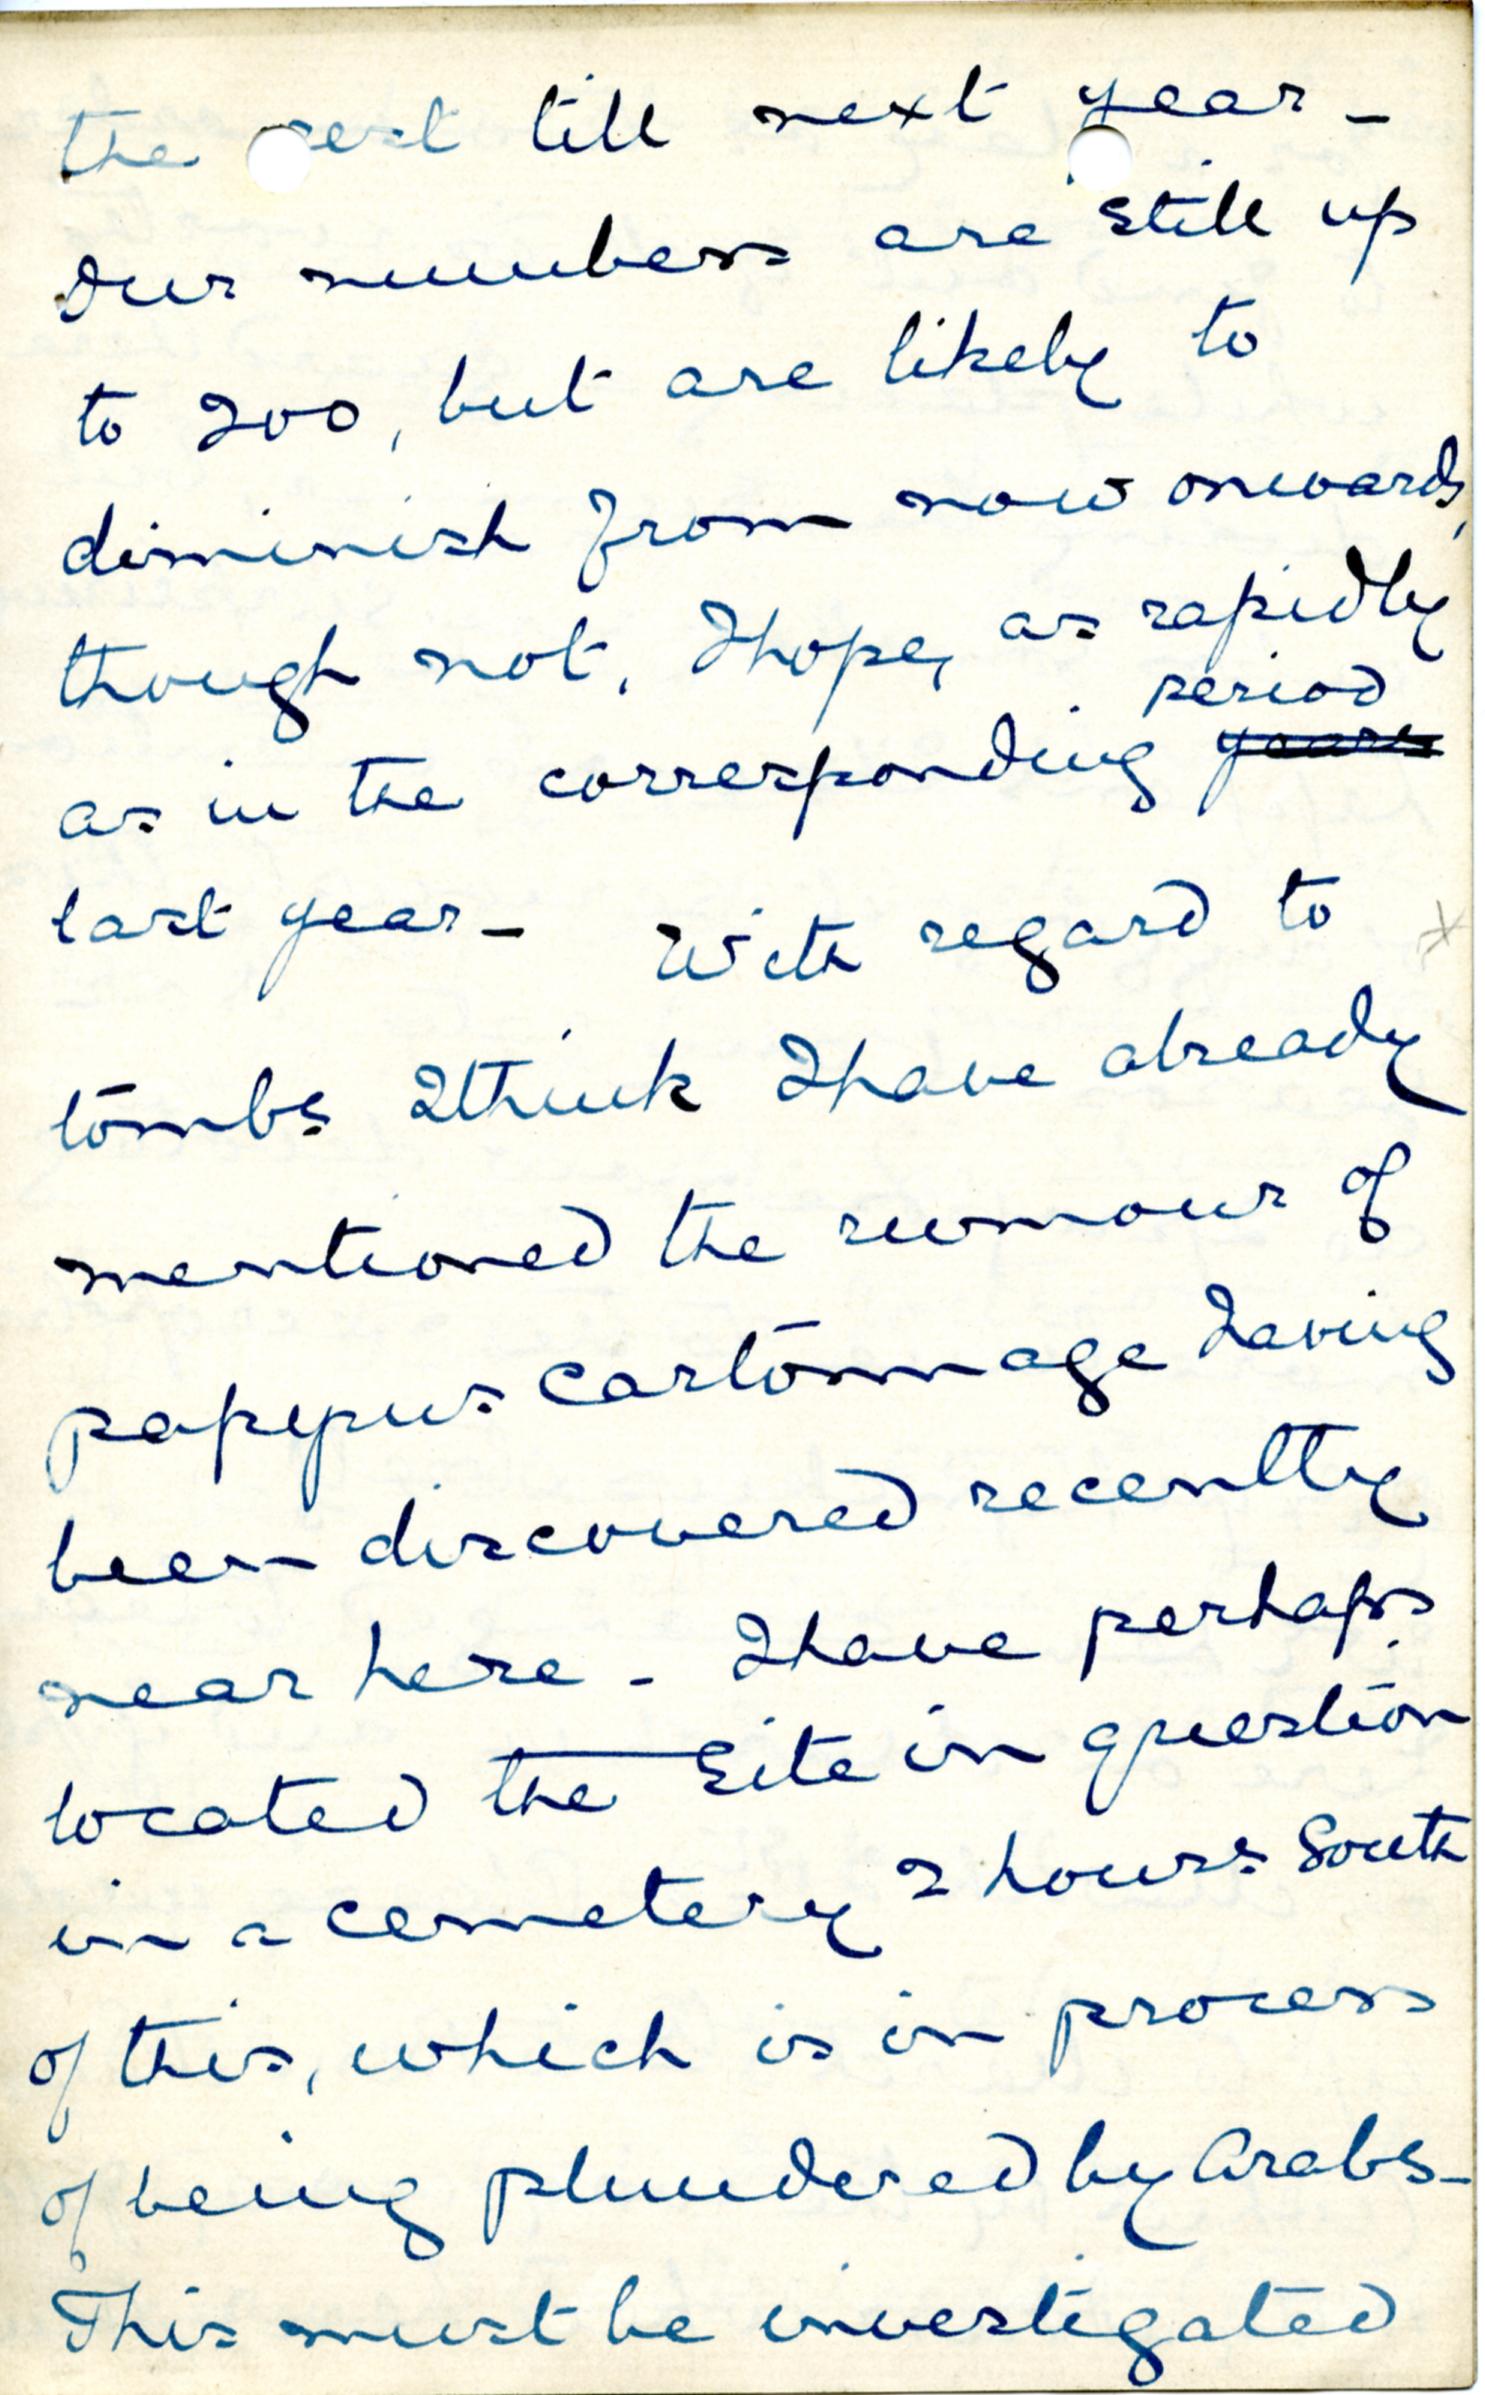 the rest till next year -
Our numbers are still up
to 200, but are likely to
diminish from now onwards,
though not, I hope, as rapidly
period
as in the corresponding years
last year - With regard to
tombs I think I have already
mentioned the rumour of
papyrus cartonnage having
been discovered recently
near here - I have perhaps
located the site in question
in a cemetery 2 hours South
of this, which is in process
of being plundered by Arabs -
This must be investigated